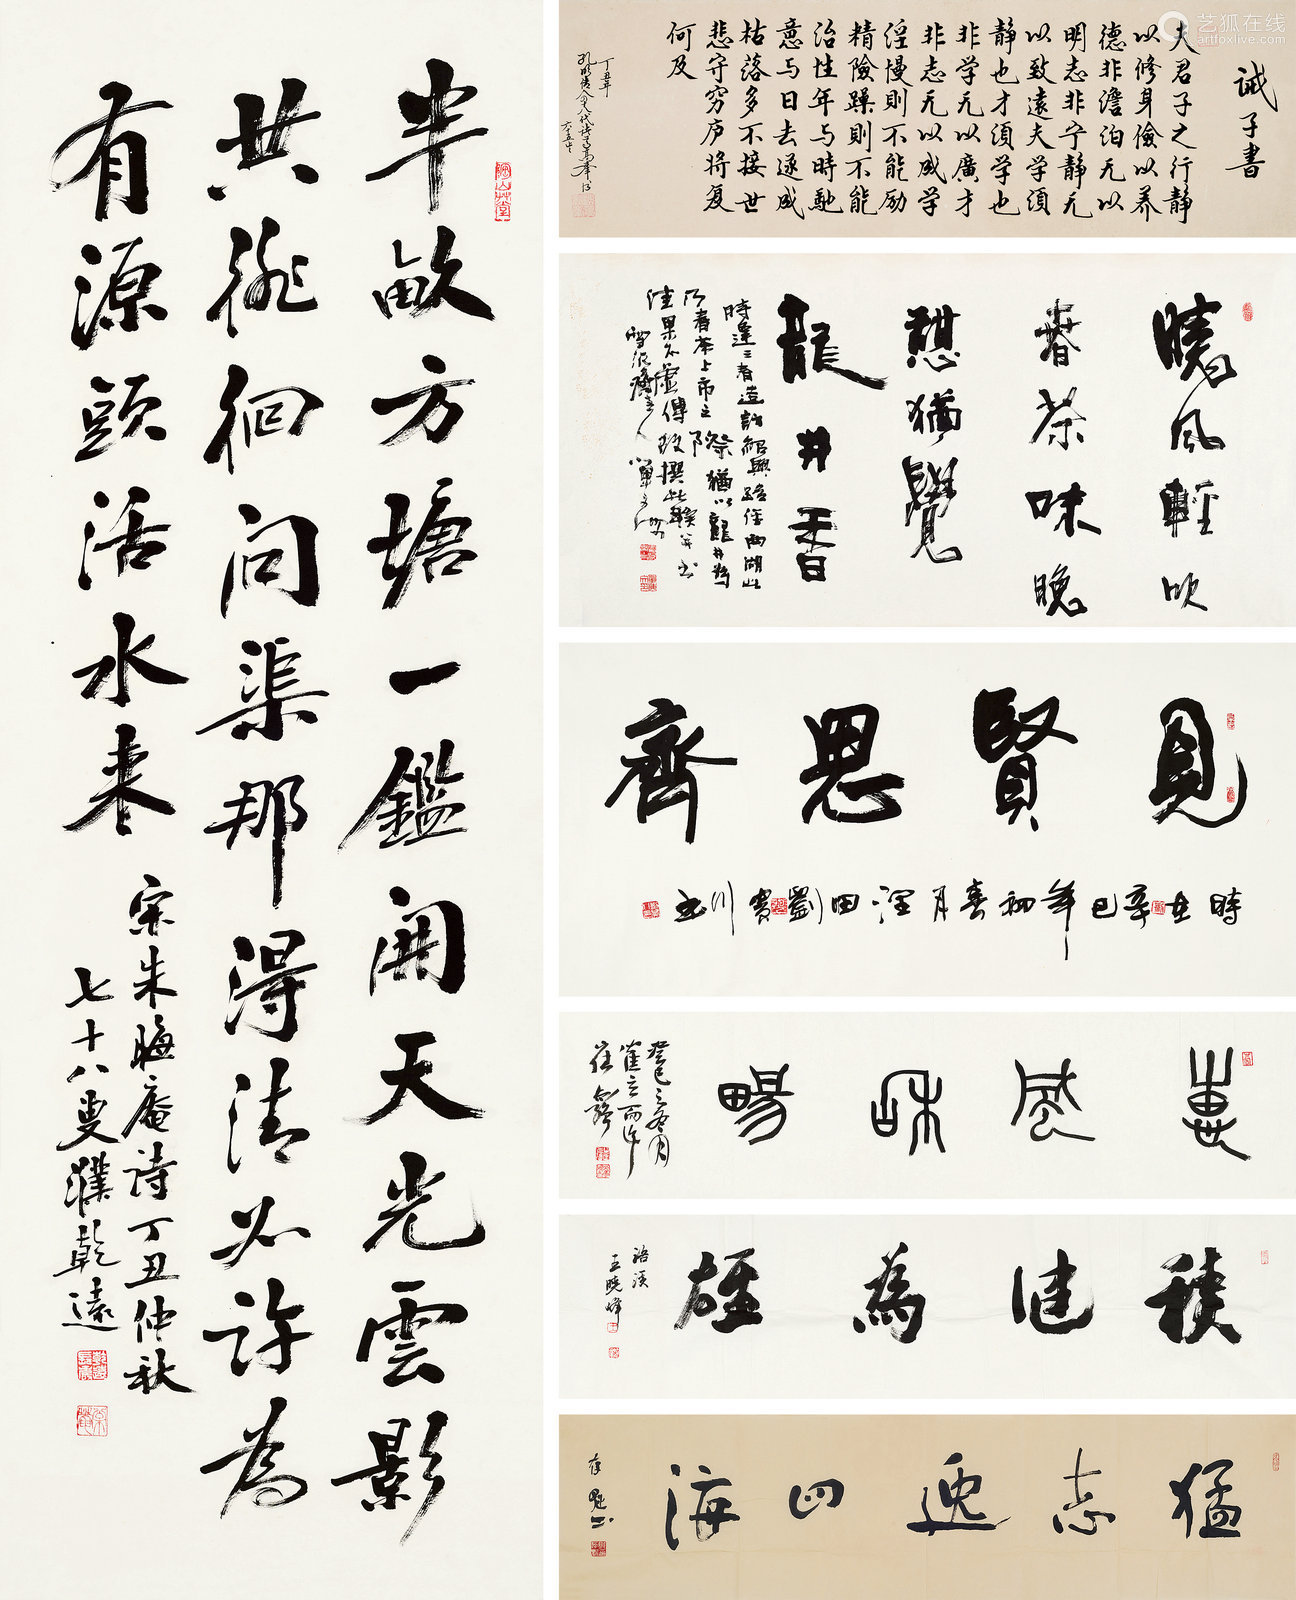 半畝方塘一鑑開天光雲影
共徘徊問渠那得清如許為
有源頭活水來
宋朱晦庵詩丁丑仲秋
七十八叟濮乾遠
诫子書
夫君子之行静
以修身儉以养
德非澹泊无以
明志非宁静无
以致遠夫学須
静也才須学也
非学无以廣才
非志无以成学
淫慢則不能励
精險躁則不能
治性年与時馳
意与日去遂成
枯落多不接世
悲守穷庐将复
何及
丁丑年
曉风輕吹
春茶味晚
憩猶覺
龍井香
時逢三春造訪紹興路經西湖
乃春茶上市之際猶以龍井為
佳果不虛傳故撰此聯并书
見賢思齊
時在辛巳年初春月 田劉貴川书
惠風和暢
癸巳之冬月
積健為雄
浯溪
王曉峰
猛志逸四海
艺狐在线
artfoxlive.com